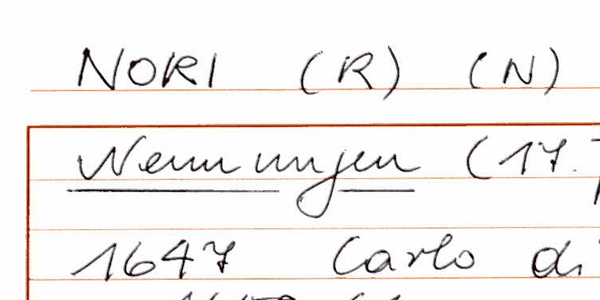 NORI (R) (N)
Nennungen (17.
1647 Carlo di